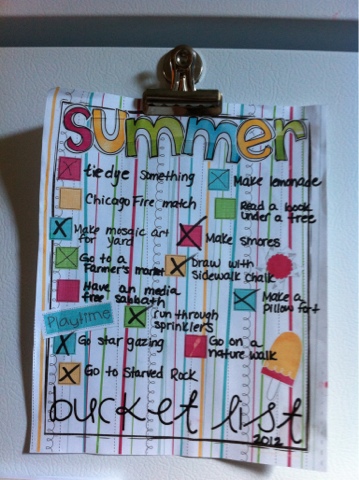 summer
tie dye something
Make lemonade
Chicago Fire match
Read a book
under a tree
Make mosaic art
for yard
Make smores
Go to a
Farmer's market
draw with
sidewalk chalk
Have an media
free sabbath
Make a
pillow fort
Playtime
run through
sprinklers
Go star gazing
Go on a
nature walk
Go to Starved Rock
bucket list
2012